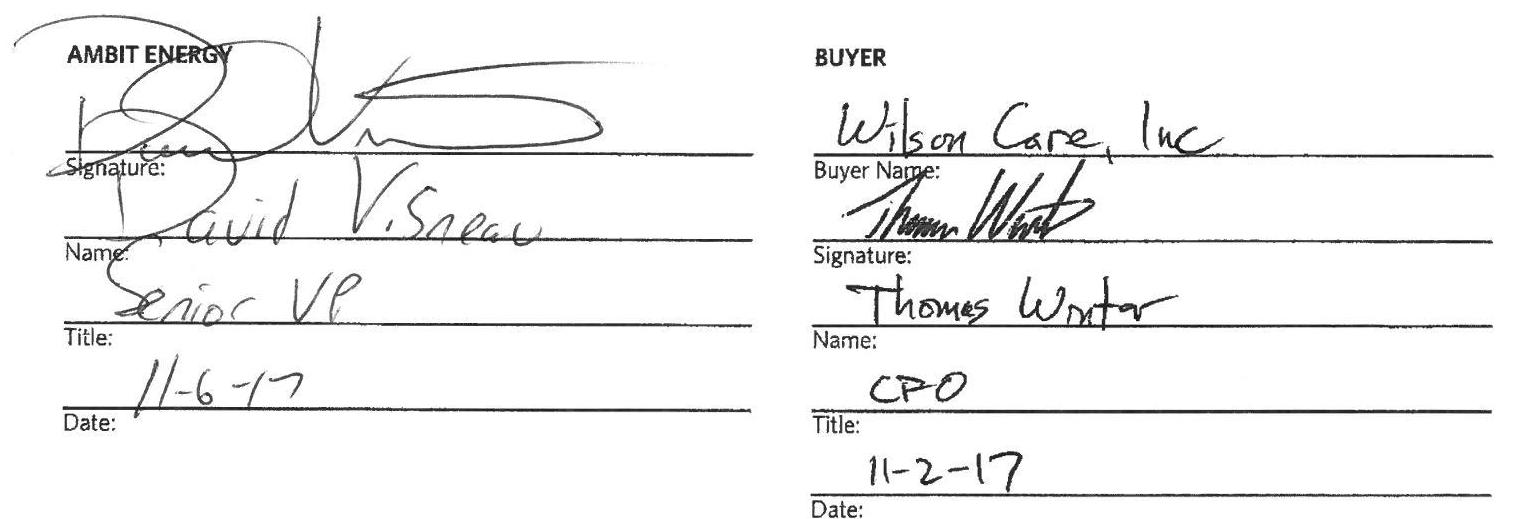 AMBIT ENERGY
Signature:
David Visneau
Name:
Senior VP
Title:
11-6-17
Date:
BUYER
Wilson Care, Inc
Buyer Name:
Signature:
Thomas Winter
Name:
CFO
Title:
11-2-17
Date: